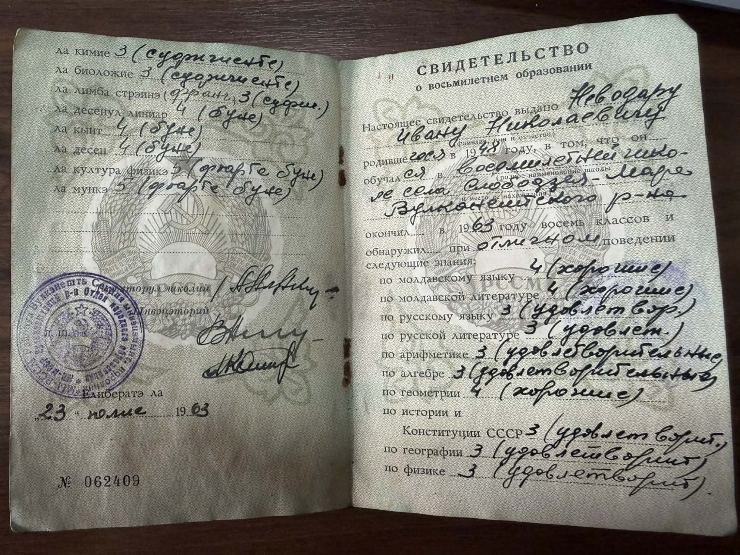 ла химие 3 (суфичиенте)
ла биоложие 3 (суфичиенте)
ла лимба стрэинэ франч. 3 (суфич.)
ла десенул линиар 4 (буне)
ла кынт 4 (буне)
ла десен 4 (буне)
ла култура физикэ 5 (фоарте буне)
ла мункэ 5 (фоарте буне)
Директорул школий
Ынвэцэторий
Елибератэ ла
„23" юлие 1963
№ 062409
СВИДЕТЕЛЬСТВО
о восьмилетнем образовании
Настоящее свидетельство выдано Неводару
Ивану Николаевичу
родившемуся в 1948 году, в том, что он
обучался в восьмилетней шко-
ле села Слободзея-Маре
Вулканештского р-на
окончил в 1963 году восемь классов и
обнаружил при отличном поведении
следующие знания:
по молдавскому языку 4 (хорошие)
по молдавской литературе 4 (хорошие)
по русскому языку 3 (удовлетвор.)
по русской литературе 3 (удовлет.)
по арифметике 3 (удовлетворительные)
по алгебре 3 (удовлетворительные)
по геометрии 4 (хорошие)
по истории и
Конституции СССР 3 (удовлетворит.)
по географии 3 (удовлетворит)
по физике 3 (удовлетворит)